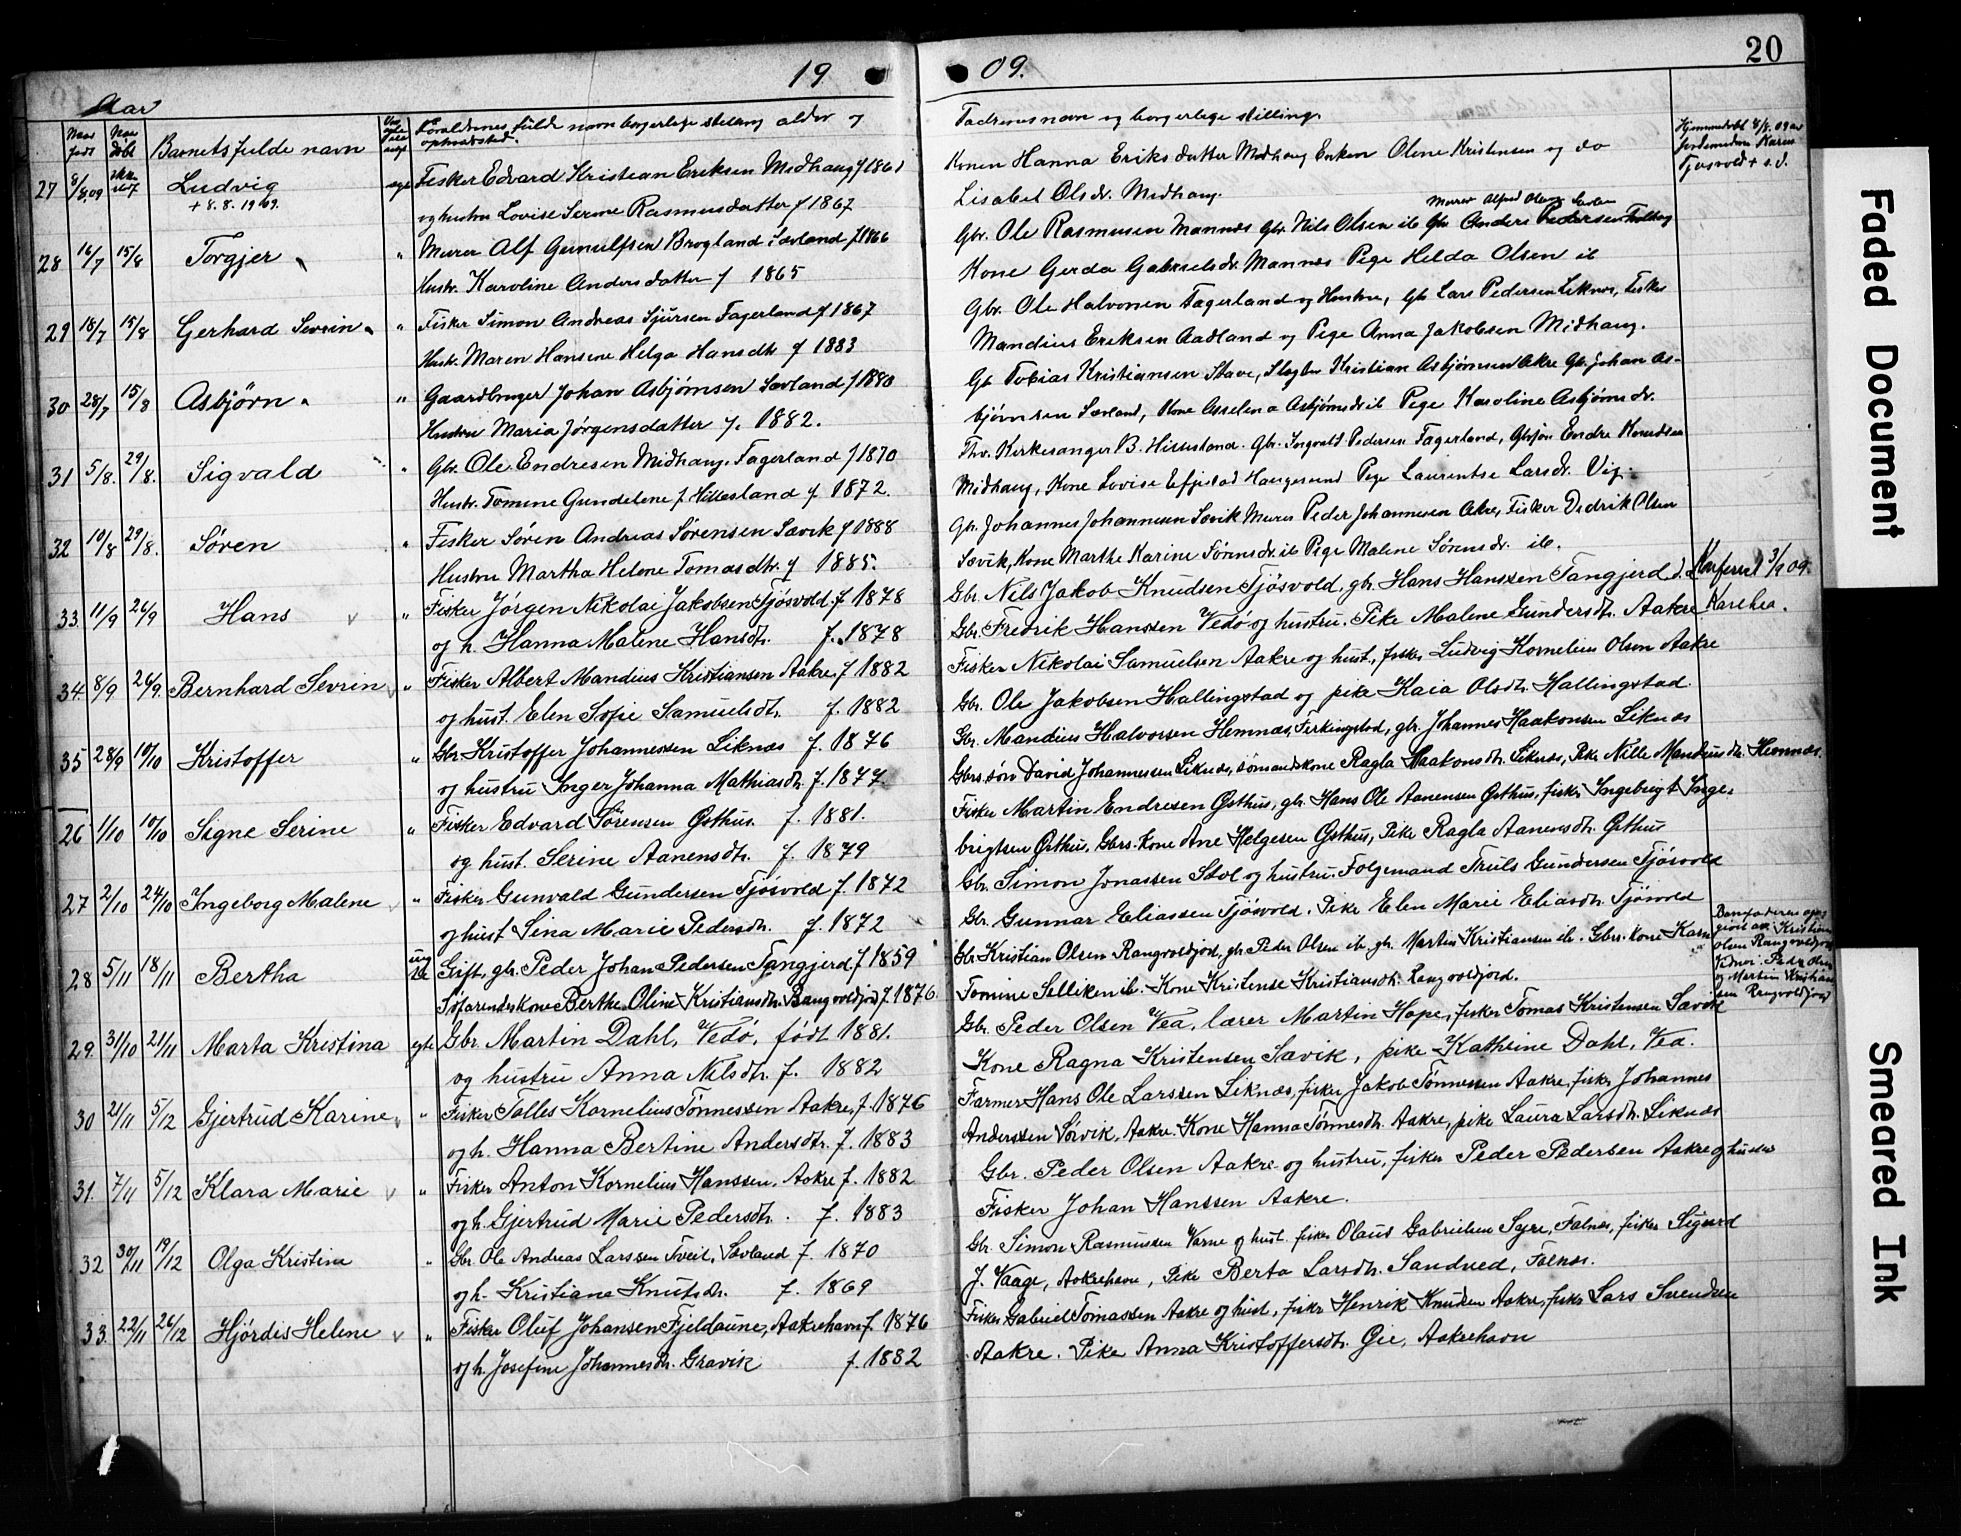 19
09.
20
Aar
Naar født
Naar døbt
Barnets fulde navn
Forældrenes fulde navn borgerlige stilling alder og opholdssted.
Fadrenes navn og borgerlige stilling.
27 8/8.09 Ludvig + 8.8.1909. Fisker Edvard Kristian Eriksen Midhaug f 1861
og hustru Lovise Serine Rasmusdatter f 1867
Konen Hanna Eriks datter Midhaug Enken Olene Kristensen og do
Lisabet Olsdr. Midhaug.
Hjemmedøbt 8/8.09 av Jordemoderen Karen Tjøsvold + s.d.
28 16/7 15/8 Torgjer " Murer Alf Gunulfsen Brogland Sævland f 1866
Hustr. Karoline Andersdatter f 1865
Gbr. Ole Rasmusen Mannes Gbr. Nils Olsen ib Gbr Anders Pedersen
Kone Gerda Gabrielsdr. Mannes Pige Helda Olsen ib
29 18/7 15/8 Gerhard Sevrin " Fisker Simon Andreas Sjursen Fagerland f 1867
Hustr. Maren Hansine Helga Hansdtr f 1883
Gbr. Ole Halvorsen Fagerland og Hustru, Gbr Lars Pedersen Liknes, Fisker
Mandius Eriksen Aadland og Pige Anna Jakobsen Midhaug.
30 28/7 15/8 Asbjörn " Gaardbruger Johan Asbjørnsen Sævland f 1880
Hustru Maria Jørgensdatter f. 1882.
Gb Tobias Kristiansen Stave, Slagter Kristian Asbjørnsen Akre Gbr. Johan As-
bjørnsen Sævland, Kone Asselena Asbjørnsdr ib Pige Karoline Asbjørnsdr.
31 5/8. 29/8. Sigvald " Gbr. Ole Endresen Midhaug. Fagerland f 1870
Hustr. Tomine Gundelene f Hillesland f 1872.
Thv. Kirkesanger B. Hillesland. Gbr. Ingvald Pedersen Fagerland, Gbrsøn Endre Knudsen
Midhaug, Kone Lovise Eftestad Haugesund Pige Laurentse Larsdr. Vig.
32 10/8 29/8. Søren " Fisker Søren Andreas Sørensen Sævik f 1888
Hustru Martha Helene Tomasdtr. f 1885.
Gbr. Johannes Johannesen Sævik Murer Peder Johannesen Akre, Fisker Didrik Olsen
Sævik, Kone Marthe Karine Sørensdr. ib Pige Malene Sørensdr. ib.
33 11/9 26/9 Hans " Fisker Jörgen Nikolai Jakobsen Tjösvold f. 1878
og h. Hanna Malene Hansdtr. f. 1878
Gbr. Nils Jakob Knudsen Tjösvold, gbr. Hans Hanssen Tangjerd
Gbr. Fredrik Hanssen Vedö og hustru. Pike Malene Gundersdtr. Aakre
34. 8/9 26/9. Bernhard Sevrin " Fisker Albert Mandius Kristiansen Aakre, f 1882
og hust. Elen Sofie Samuelsdt. f. 1882
Fisker Nikolai Samuelsen Aakre og hust., fisker Ludvig Kornelius Olsen Aakre
Gbr. Ole Jakobsen Hallingstad og pike Kaia Olsdtr. Hallingstad.
35 28/9 10/10 Kristoffer " Gbr Kristoffer Johannessen Liknes f. 1876
og hustru Inger Johanna Mathiasdtr. f. 1877
Gbr. Mandius Halvorsen Hemnes, Ferkingstad, gbr. Johannes Haakonsen Liknes
Gbrs.søn David Johannessen Liknes, sömandskone Ragla Haakonsdtr. Liknes, Pike Nille Mandiusdtr. Hemnes.
26 1/10 10/10 Signe Serine " Fisker Edvard Sörensen Østhus. f. 1881.
og hust. Serine Aanensdtr. f. 1879
Fisker Martin Endresen Østhus, gbr. Hans Ole Aanensen Østhus, fisker Ingebrigt Inge-
brigtsen Østhus. Gbrs. kone Ane Helgesen Østhus, Pike Ragla Aanensdtr. Østhus
27 2/10 24/10 Ingeborg Malene " Fisker Gunvald Gundersen Tjösvold f. 1872
og hust Sina Marie Pedersdtr. f. 1872
Gbr. Simon Jonassen Stol og hustru. Folgemand Truls Gundersen Tjösvold
Gbr. Gunnar Eliassen Tjösvold. Pike Elen Marie Eliasdtr. Tjösvold
28 5/11 18/11 Bertha Gift, gbr. Peder Johan Pedersen Tangjerd f 1859
Söfarendeskone Berthe Oline Kristiansdtr. Rangvoldjord f. 1876.
Gbr Kristian Olsen Rangvoldjord, gbr Peder Olsen ib, gbr. Martin Kristiansen ib. Gbrs. kone Karn
Tomine Selliken ib. Kone Kristense Kristiansdtr. Rangvoldjord.
Barnfaderen opgivet av Kristian Olsen Rangvoldjord Vidner: Peder Olsen og Martin Kristiansen Rangvoldjord
29. 31/10 21/11 Marta Kristina egte Gbr. Martin Dahl, Vedö, födt 1881.
og hustru Anna Nilsdtr. f. 1882
Gbr. Peder Olsen Vea, lærer Martin Hope, fisker Tomas Kristensen Sævik
Kone Ragna Kristensen Sævik, pike Kathrine Dahl, Vea.
30 21/11 5/12 Gjertrud Karine " Fisker Tolles Kornelius Tönnessen Aakre, f. 1876
og h. Hanna Bertine Andersdtr. f. 1883
Farmer Hans Ole Larssen Liknes, fisker Jakob Tönnessen Aakre, fisker Johannes
Anderssen Sörvik, Aakre. Kone Hanna Tönnesdtr. Aakre, pike Laura Larsdtr. Liknes
31. 7/11 5/12 Klara Marie " Fisker Anton Kornelius Hanssen. Aakre f. 1882
og h. Gjertrud Marie Pedersdtr. f. 1883
Gbr. Peder Olsen Aakre og hustru, fisker Peder Pedersen Aakre og hustru
Fisker Johan Hanssen Aakre.
32 30/11 19/12 Olga Kristine " Gbr. Ole Andreas Larssen Tveit, Sævland f. 1870
og h. Kristiane Knutsdtr. f. 1869
Gbr. Simon Rasmussen Varne og hust. fisker Olaus Gabrielsen Syre, Falnes, fisker Sigurd
J. Vaage, Aakrehavn, Pike Berta Larsdtr. Sandved, Falnes.
33. 22/11 26/12 Hjördis Helene " Fisker Oluf Johansen Fjeldaune, Aakrehavn f. 1876
og h. Josefine Johannesdtr. Gravik f. 1882
Fisker Gabriel Tomassen Aakre og hust, fisker Henrik Knudsen Aakre, fisker Lars Svendsen
Aakre. Pike Anna Kristoffersdtr. Gie, Aakrehavn
Faded Document
Smeared Ink